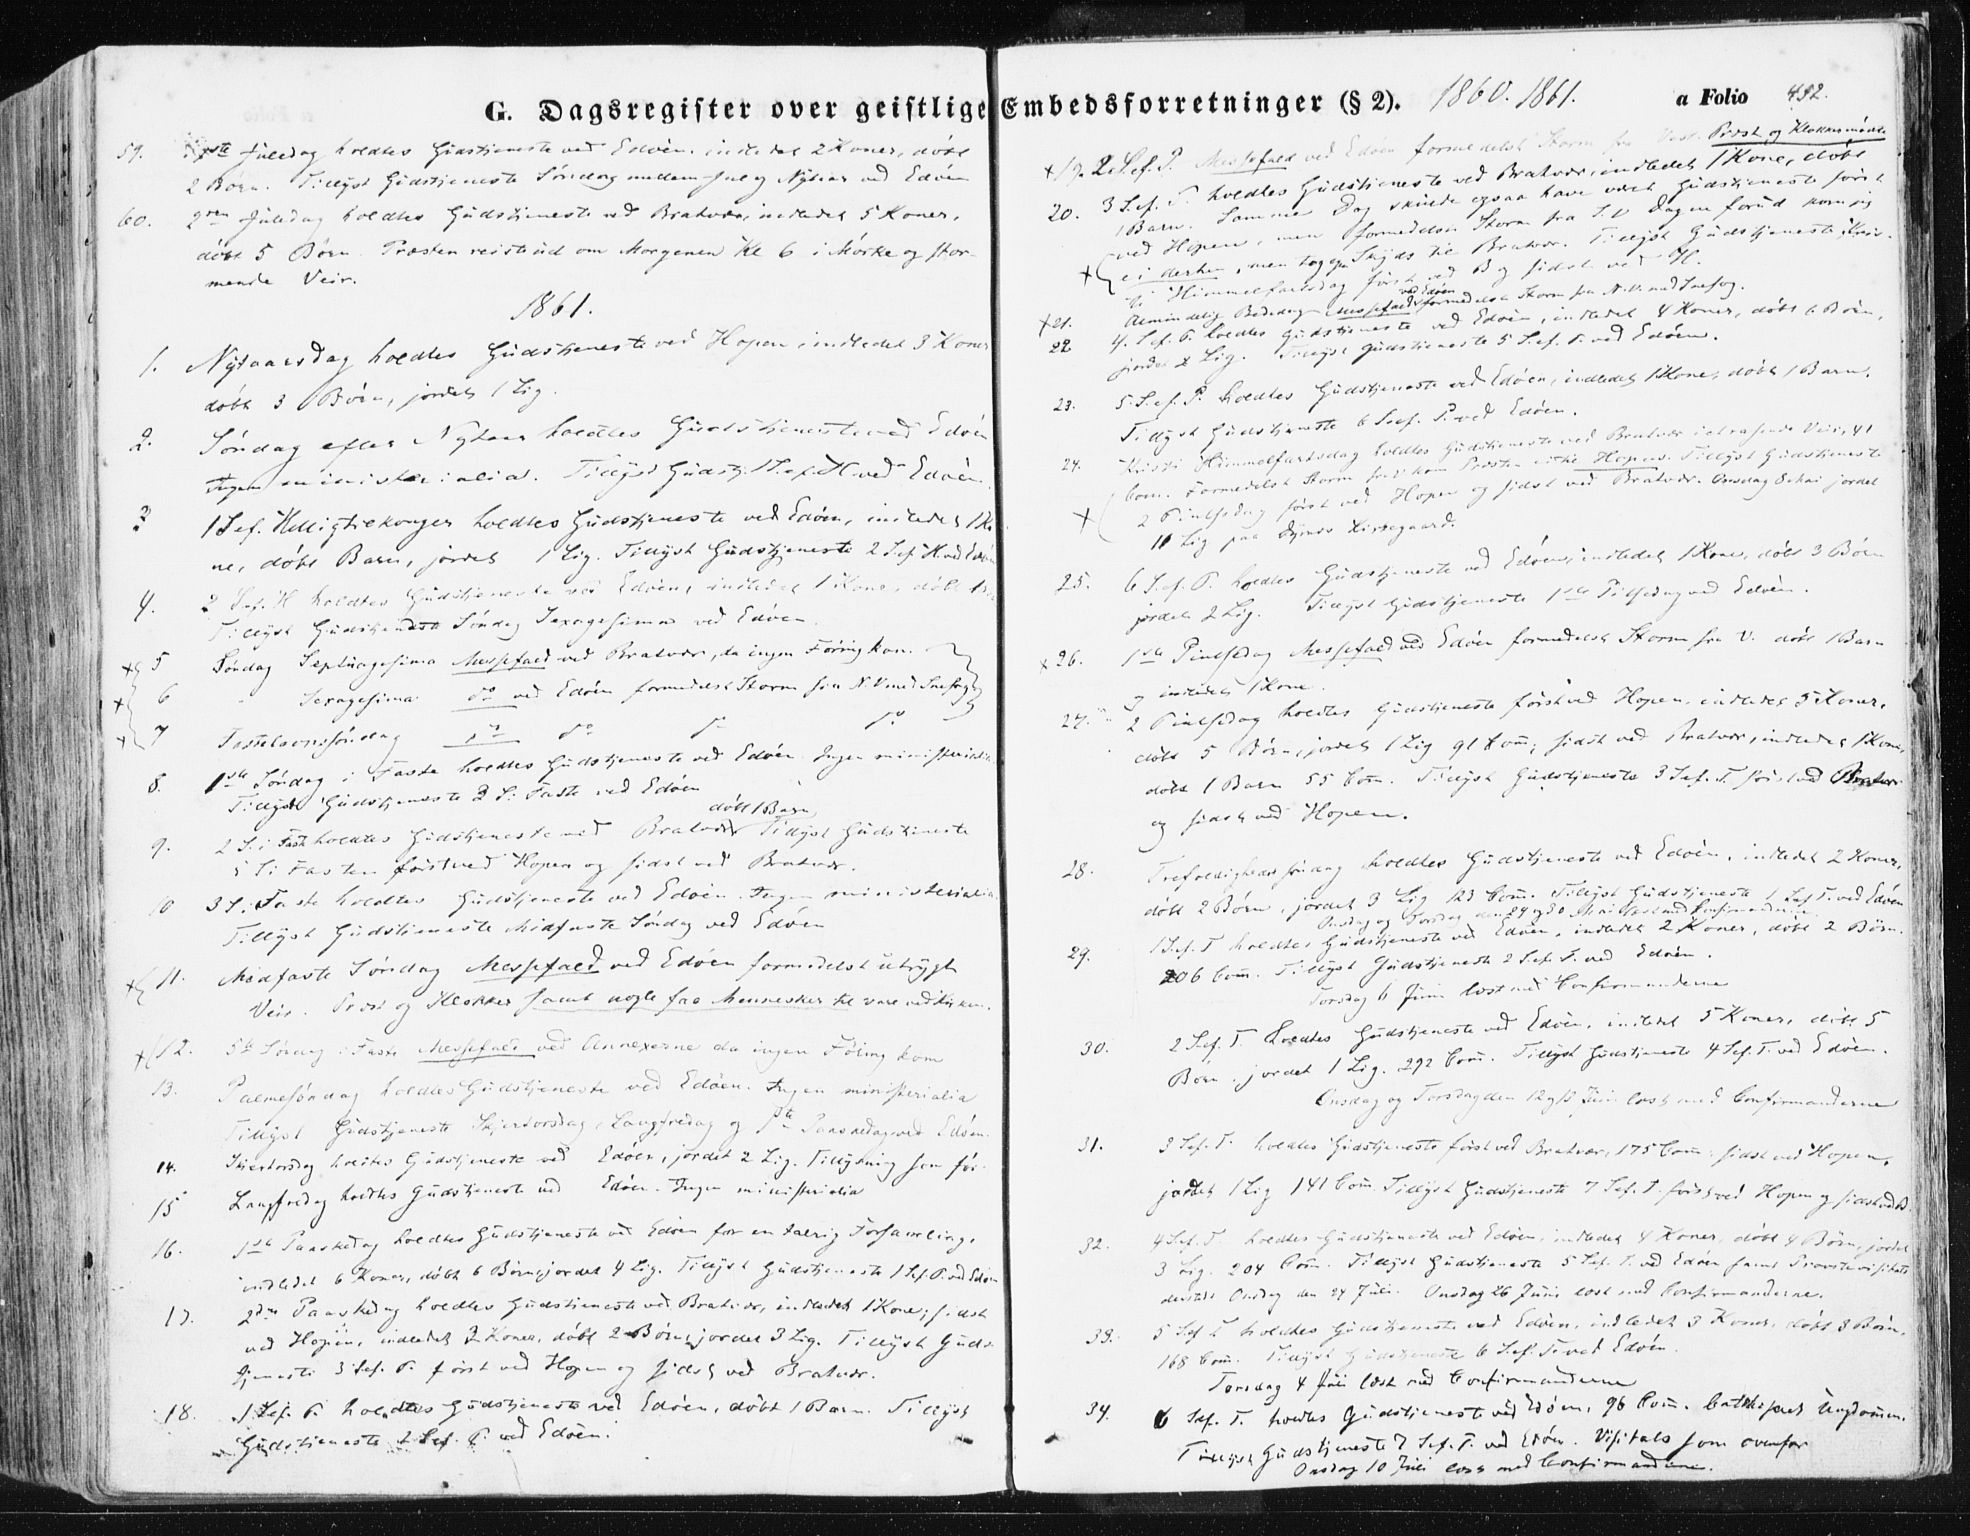 G. Dagsregister over geistlige Embedsforretninger (§ 2). 1860. 1861. a Folio 492.
59. 1ste Juledag holdtes Gudstjeneste ved Edöen. indledet 2 Koner, döbt
2 Börn. Tillyst Gudstjeneste Söndag mellem Jul og Nytaar ved Edöen
60. 2den Juledag holdtes Gudstjeneste ved Bratvær, indledet 5 Koner,
döbt 5 Börn. Præsten reiste ud om Morgenen Kl 6 i Mörke og stor-
mende Veir.
1861.
1. Nytaarsdag holdtes Gudstjeneste ved Hopen, indledet 3 Koner
döbt 3 Börn, jordet 1 Lig.
2. Söndag efter Nytaar holdtes Gudstjeneste ved Edöen
Ingen ministerialia. Tillyst Gudstj. 1 S. ef. H ved Edöen.
3 1 S. ef. Helligtrekonger holdtes Gudstjeneste ved Edöen, indledet 1 Ko-
ne, döbt Barn, jordet 1 Lig. Tillyst Gudstjeneste 2 S. ef. H ved Edöen
4. 2 S. ef. H holdtes Gudstjeneste ved Edöen, indledet 1 Kone, döbt 1
Tillyst Gudstjeneste Söndag Sexagesima ved Edöen.
5 Söndag Septuagesima Messefald ved Bratvær, da ingen Föring kom.
6 " Sexagesima do ved Edöen formedelst Storm fra N.V. med Snefog
7 Fastelavnssöndag do do do do
8. 1ste Söndag i Faste holdtes Gudstjeneste ved Edöen. Ingen ministerialia
Tillyst Gudstjeneste 3 S. i Faste ved Edöen
9. 2 S. i Faste holdtes Gudstjeneste ved Bratvær döbt 1 Barn Tillyst Gudstjeneste
5 S. i Fasten först ved Hopen og sidst ved Bratvær.
10 3 S. i Faste holdtes Gudstjeneste ved Edöen. Ingen ministerialia
Tillyst Gudstjeneste Midfaste Söndag ved Edöen
11. Midfaste Söndag Messefald ved Edöen formedelst utrygt
Veir. Præst og Klokker samt nogle faa Mennesker til vare ved Kirken.
12. 5te Söndag i Faste Messefald ved Annexerne da ingen Föring kom
13. Palmesöndag holdtes Gudstjeneste ved Edöen. Ingen ministerialia
Tillyst Gudstjeneste Skjertorsdag, Langfredag og 1ste Paaskedag ved Edöen.
14. Skjertorsdag holdtes Gudstjeneste ved Edöen, jordet 2 Lig. Tillysning som för.
15 Langfredag holdtes Gudstjeneste ved Edöen. Ingen ministerialia
16. 1ste Paaskedag holdtes Gudstjeneste ved Edöen for en talrig Forsamling.
indledet 6 Koner, döbt 6 Börn, jordet 4 Lig. Tillyst Gudstjeneste 1 S. ef. P. ved Edöen
17. 2den Paaskedag holdtes Gudstjeneste ved Bratvær, indledet 1 Kone; sidst
ved Hopen, indledet 2 Koner, döbt 2 Börn, jordet 3 Lig. Tillyst Guds-
tjeneste 3 S. ef. P. först ved Hopen og sidst ved Bratvær.
18. 1 S. ef. P. holdtes Gudstjeneste ved Edöen, döbt 1 Barn. Tillyst
Gudstjeneste 2 S. ef. P. ved Edöen.
19. 2 S. ef. P. Messefald ved Edöen formedelst Storm fra Vest. Præst og Klokker mödte
20. 3 S. ef. P. holdtes Gudstjeneste ved Bratvær, indledet 1 Kone, döbt
1 Barn. Samme Dag skulde ogsaa have været Gudstjeneste först
ved Hopen, men formedelst Storm fra S.V. Dagen forud kom jeg
ei derhen, men tog Skyds til Bratvær. Tillyst Gudstjeneste Kri-
sti Himmelfartsdag först ved B og sidst ved H.
21. Almindelig Bededag Messefald ved Edöen formedelst Storm fra N.V. med Snefog.
22 4. S. ef. P. holdtes Gudstjeneste ved Edöen, indledet 4 Koner, döbt 6 Börn,
jordet 2 Lig. Tillyst Gudstjeneste 5 S. ef. P. ved Edöen.
23. 5. S. ef. P. holdtes Gudstjeneste ved Edöen, indledet 1 Kone, döbt 1 Barn.
Tillyst Gudstjeneste 6 S. ef. P. ved Edöen.
24. Kristi Himmelfartsdag holdtes Gudstjeneste ved Bratvær i Veir, 41
Com. Formedelst Storm kom Præsten ei til Hopen. Tillyst Gudstjeneste
2 Pintsedag först ved Hopen og sidst ved Bratvær. Onsdag 8 Mai jordet
11 Lig paa Kirkegaard.
25. 6 S. ef. P. holdtes Gudstjeneste ved Edöen, indledet 1 Kone, döbt 3 Börn
jordet 2 Lig. Tillyst Gudstjeneste 1ste Pintsedag ved Edöen.
26. 1ste Pintsedag Messefald ved Edöen formedelst Storm fra V. döbt 1 Barn
og indledet 1 Kone.
27. 2 Pintsedag holdtes Gudstjeneste först ved Hopen, indledet 5 Koner,
döbt 5 Börn, jordet 1 Lig 91 Com; sidst ved Bratvær, indledet 1 Kone,
döbt 1 Barn 55 Com. Tillyst Gudstjeneste 3 S. ef. T. först ved Bratvær
og sidst ved Hopen.
28. Trefoldighedssöndag holdtes Gudstjeneste ved Edöen, indledet 2 Koner,
döbt 2 Börn, jordet 3 Lig 123 Com. Tillyst Gudstjeneste 1 S. ef. T. ved Edöen
Onsdag og Torsdag den 29 og 30 Mai læst med Confirmanderne
29. 1 S. ef. T holdtes Gudstjeneste ved Edöen, indledet 2 Koner, döbt 2 Börn.
206 Com. Tillyst Gudstjeneste 2 S. ef. T. ved Edöen.
Torsdag 6 Juni læst med Confirmanderne
30. 2 S. ef. T. holdtes Gudstjeneste ved Edöen, indledet 5 Koner, döbt 5
Börn, jordet 1 Lig. 292 Com. Tillyst Gudstjeneste 4 S. ef. T. ved Edöen.
Onsdag og Torsdag den 12 og 13 Juni læst med Confirmanderne
31. 3 S. ef. T. holdtes Gudstjeneste först ved Bratvær, 175 Com. sidst ved Hopen,
jordet 1 Lig 141 Com. Tillyst Gudstjeneste 7 S. ef. T. först ved Hopen og sidst ved B.
32. 4 S. ef. T. holdtes Gudstjeneste ved Edöen, indledet 4 Koner, döbt 4 Börn, jordet
3 Lig. 204 Com. Tillyst Gudstjeneste 5 S. ef. T. ved Edöen samt Provstevisitats
dersteds Onsdag den 24 Juli. Onsdag 26 Juni læst med Confirmanderne.
33. 5 S. ef. T. holdtes Gudstjeneste ved Edöen, indledet 3 Koner, döbt 3 Börn,
168 Com. Tillyst Gudstjeneste 6 S. ef. T. ved Edöen.
Torsdag 4 Juli læst med Confirmanderne
34. 6 S. ef. T. holdtes Gudstjeneste ved Edöen, 96 Com. Catekiseret Ungdommen.
Tillyst Gudstjeneste 7 S. ef. T. ved Edöen. Visitats som ovenfor
Onsdag 10 Juli læst med Confirmanderne.